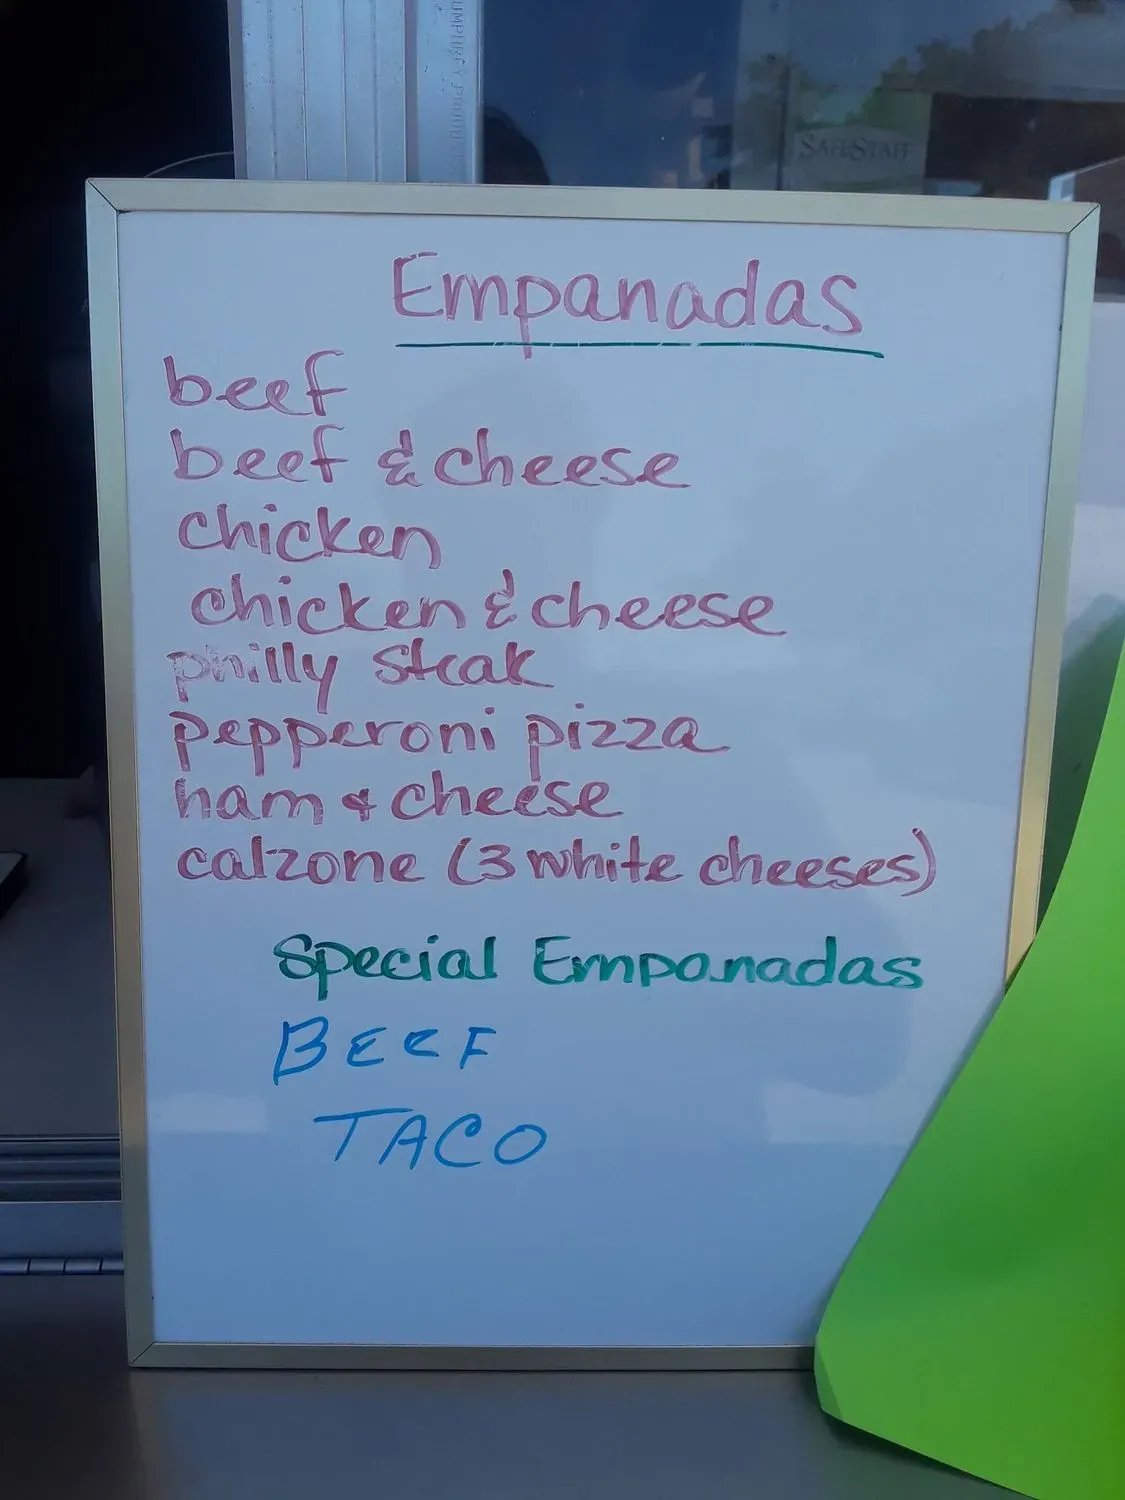 SAFESTAFF
Empanadas
beef
beef & cheese
chicken
chicken & cheese
philly steak
pepperoni pizza
ham & cheese
calzone (3 white cheeses)
Special Empanadas
BEEF
TACO